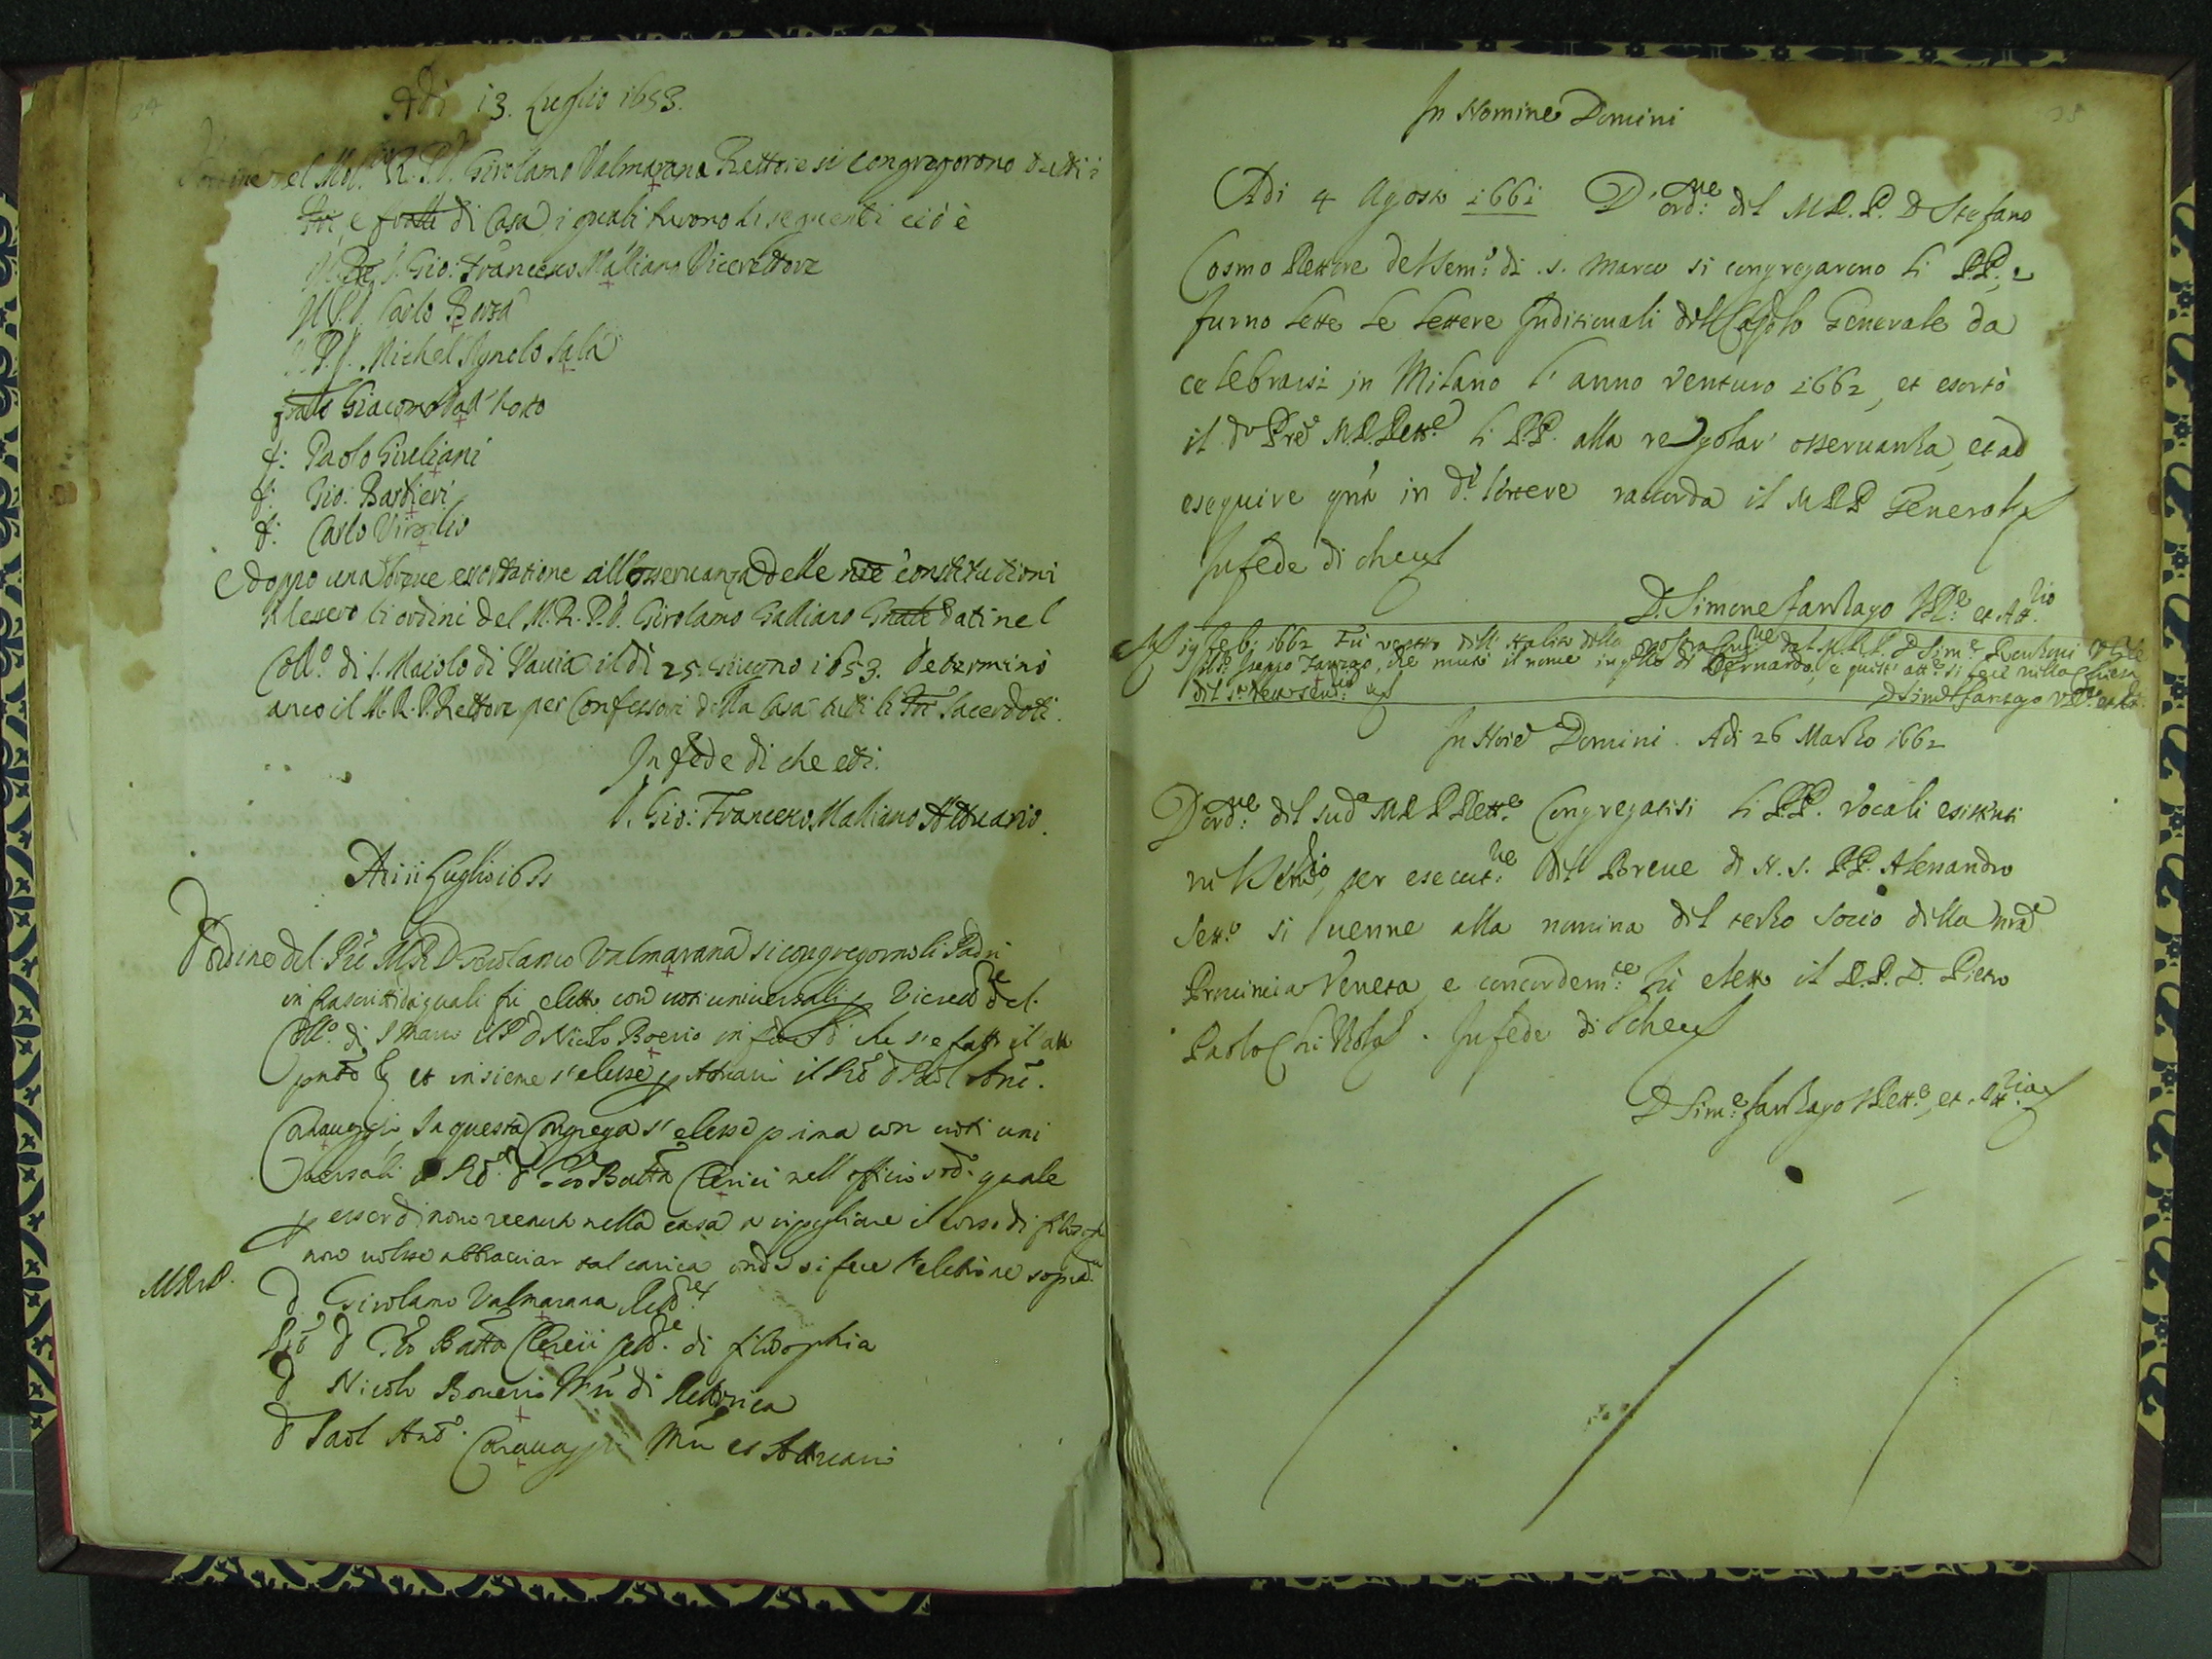 Adi 13. Luglio 1653.
D'ordine del Mol. R. P. D. Girolamo Valmarana Rettore si congregorono tutti i
Pri, e fratelli di Casa, i quali furono li seguenti ciò è
Il P. D. Gio: Francesco Malliano Vicerettore
Il P. D. Carlo Borsa
Il P. D. Michel Agnolo Sala
fratello Giacomo
f: Paolo Giuliani
f: Gio: Barbieri
f: Carlo Virgilio
E doppo una breve essortatione all'osservanza delle nre constitutioni
si lessero li ordini del M. R. P. D. Girolamo Galliano Gnale dati nel
Coll.o di S. Maiolo di Pavia il dì 25 Giugno 1653. Determinò
anco il M. R. P. Rettore per Confessori della Casa tutti li Pri Sacerdoti.
In fede di che etc.
D. Gio: Francesco Malliano Attuario.
Adi 11 Luglio 1655
D'ordine del Pre M.R.D. Girolamo Valmarana si congregorno li Padri
infrascritti da quali fu eletto con voti universali p Vicerett.re del
Coll.o di S Marco il P D Nicolò Boerio in fede di che s'è fatto il
pnte et insieme s'elesse p Attuario il Pre D Paol Ant.
Caravaggi In questa Congrega s'elesse prima con voti uni
versali il Pre D Gio Batta Clerici nell officio sod.o quale
p esser di novo venuto nella casa a ripigliare il corso di filosof
non volse abbracciar tal carica onde si fece l'elettione sopra
M.R.P. D. Girolamo Valmarana Rett.re
Pre D Gio Batta Clerici Lett.e di filosophia
D Nicolo Boverio Mro di Rettorica
D Paol Ant.o Caravaggi Mro et Attuario
In Nomine Domini
Adi 4 Agosto 1661 D'ord.ne del M.R.P. D Stefano
Cosmo Rettore del Sem.o di S. Marco si congregarono li PP. e
furno lette le lettere Inditionali del Capitolo Generale da
celebrarsi in Milano l'anno venturo 1662, et esortò
il do Pre M.R. Rett.e li PP. alla regolar osservanza, et ad
eseguire qnto in de lettere raccorda il M R P Generale
In fede di che
D. Simone Santago V.R.e et Att.rio
Adi 19 1662 Fu vestito dell' Habito della nostra dal M.R.P. D Sim.e
Santago, che mutò il nome in qllo di Bernardo, e quest' att.e si fece nella Chiesa
D Sim.e Santago V.R.e et Att.
In Noie Domini. Adi 26 Marzo 1662
D'ord.ne del sud.o M R P Rett.e Congregatisi li PP. Vocali esistenti
nel Sem.rio, per esecut.ne del Breve di N. S. PP. Alessandro
Sett.o si venne alla nomina del terzo socio della nra
Provincia Veneta, e concordem.te fu eletto il R.P. D. Pietro
Paolo. In fede di che
D Sim.e Santago VRett.e, et Att.rio